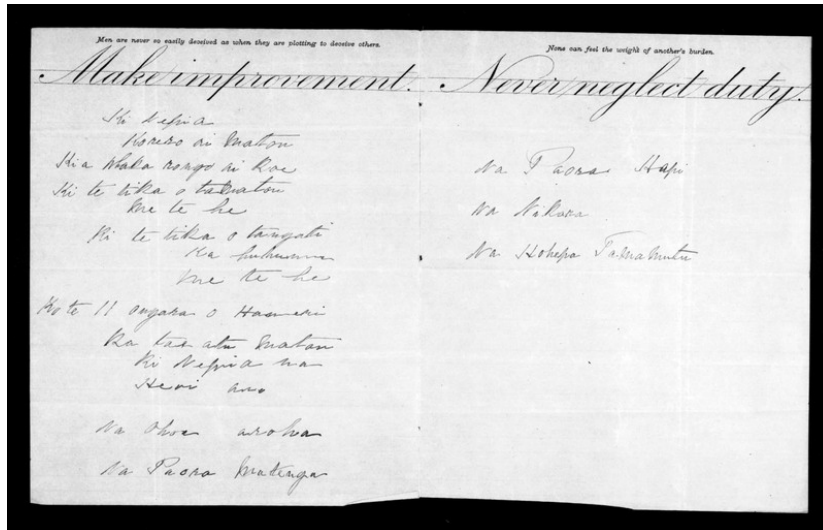 Men are never so easily deceived as when they are plotting to deceive others.
Make improvement.
Ki Nepia
Korero ai Matou
Kia Whaka rongo ai Koe
Ki te tika o tatou
Me te he
Ki te tika o tangati
Ka
Me te he
Ko te 11 ongara o Hanueri
Ka tae atu Matou
Ki Nepia na
Heoi ano
Na Ohou aroha
Na Paora Matenga
None can feel the weight of another's burden.
Never neglect duty.
Na Paora Hapi
Na Nikora
Na Hohepa Tamamutu